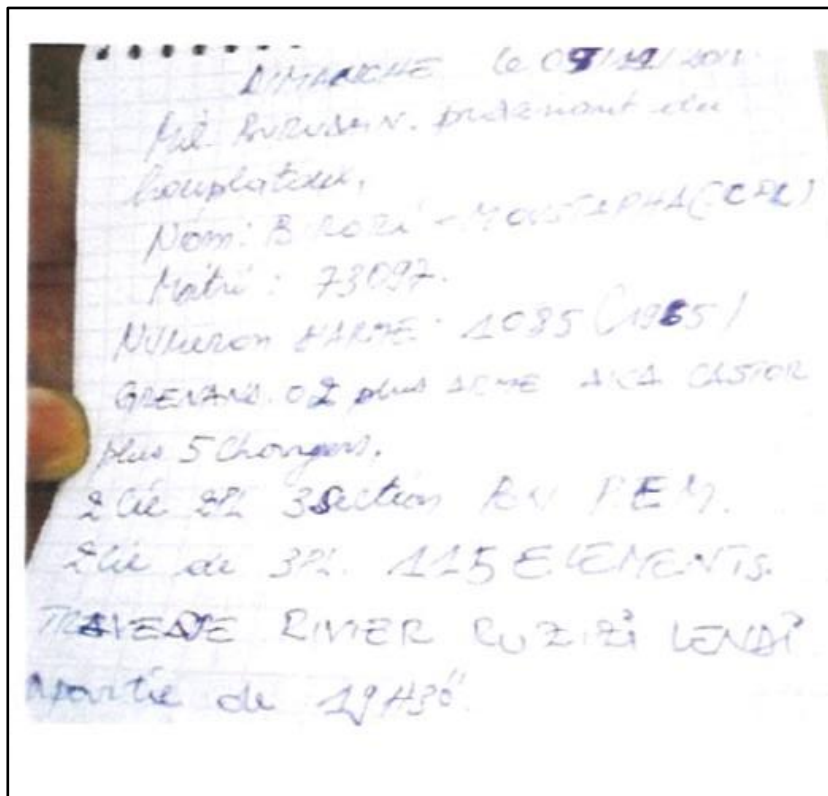 DIMANCHE le 09/12/2018
Mil BURUNDAIN. provenant du
hauplateau,
Nom: BIRORI - MOUSTAPHA (CPL)
Matri : 73097.
NUMeron D'ARME: 1085 (1965)
GRENANE. 02 plus ARME AKA CASTOR
plus 5 Chargers.
2 Cie 2PL 3Section BN PEM.
2Cie de 3PL. 115 ELEMENTS.
TRAVERSE RIVIER RUZIZI LENDI
Apartie de 19H30"